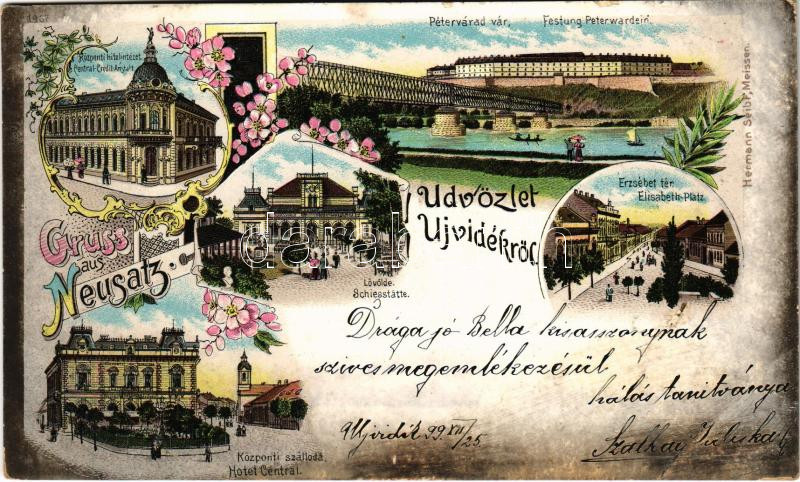 1967
Pétervárad vár, Festung Peterwardein.
Központi hitelintézet
Central-Credit-Anstalt
Hermann Seibt, Meissen.
Erzsébet tér.
Elisabeth-Platz.
Udvözlet
Ujvidékröl.
Gruss
aus
Neusatz.
Lövölde.
Schiesstätte.
darabanth
Drága jó Bella kisasszonynak
szives megemlékezésül
hálás tanitványa
Szalhay Juliska
Ujvidék 99 XII/25
Központi szálloda.
Hotel Central.